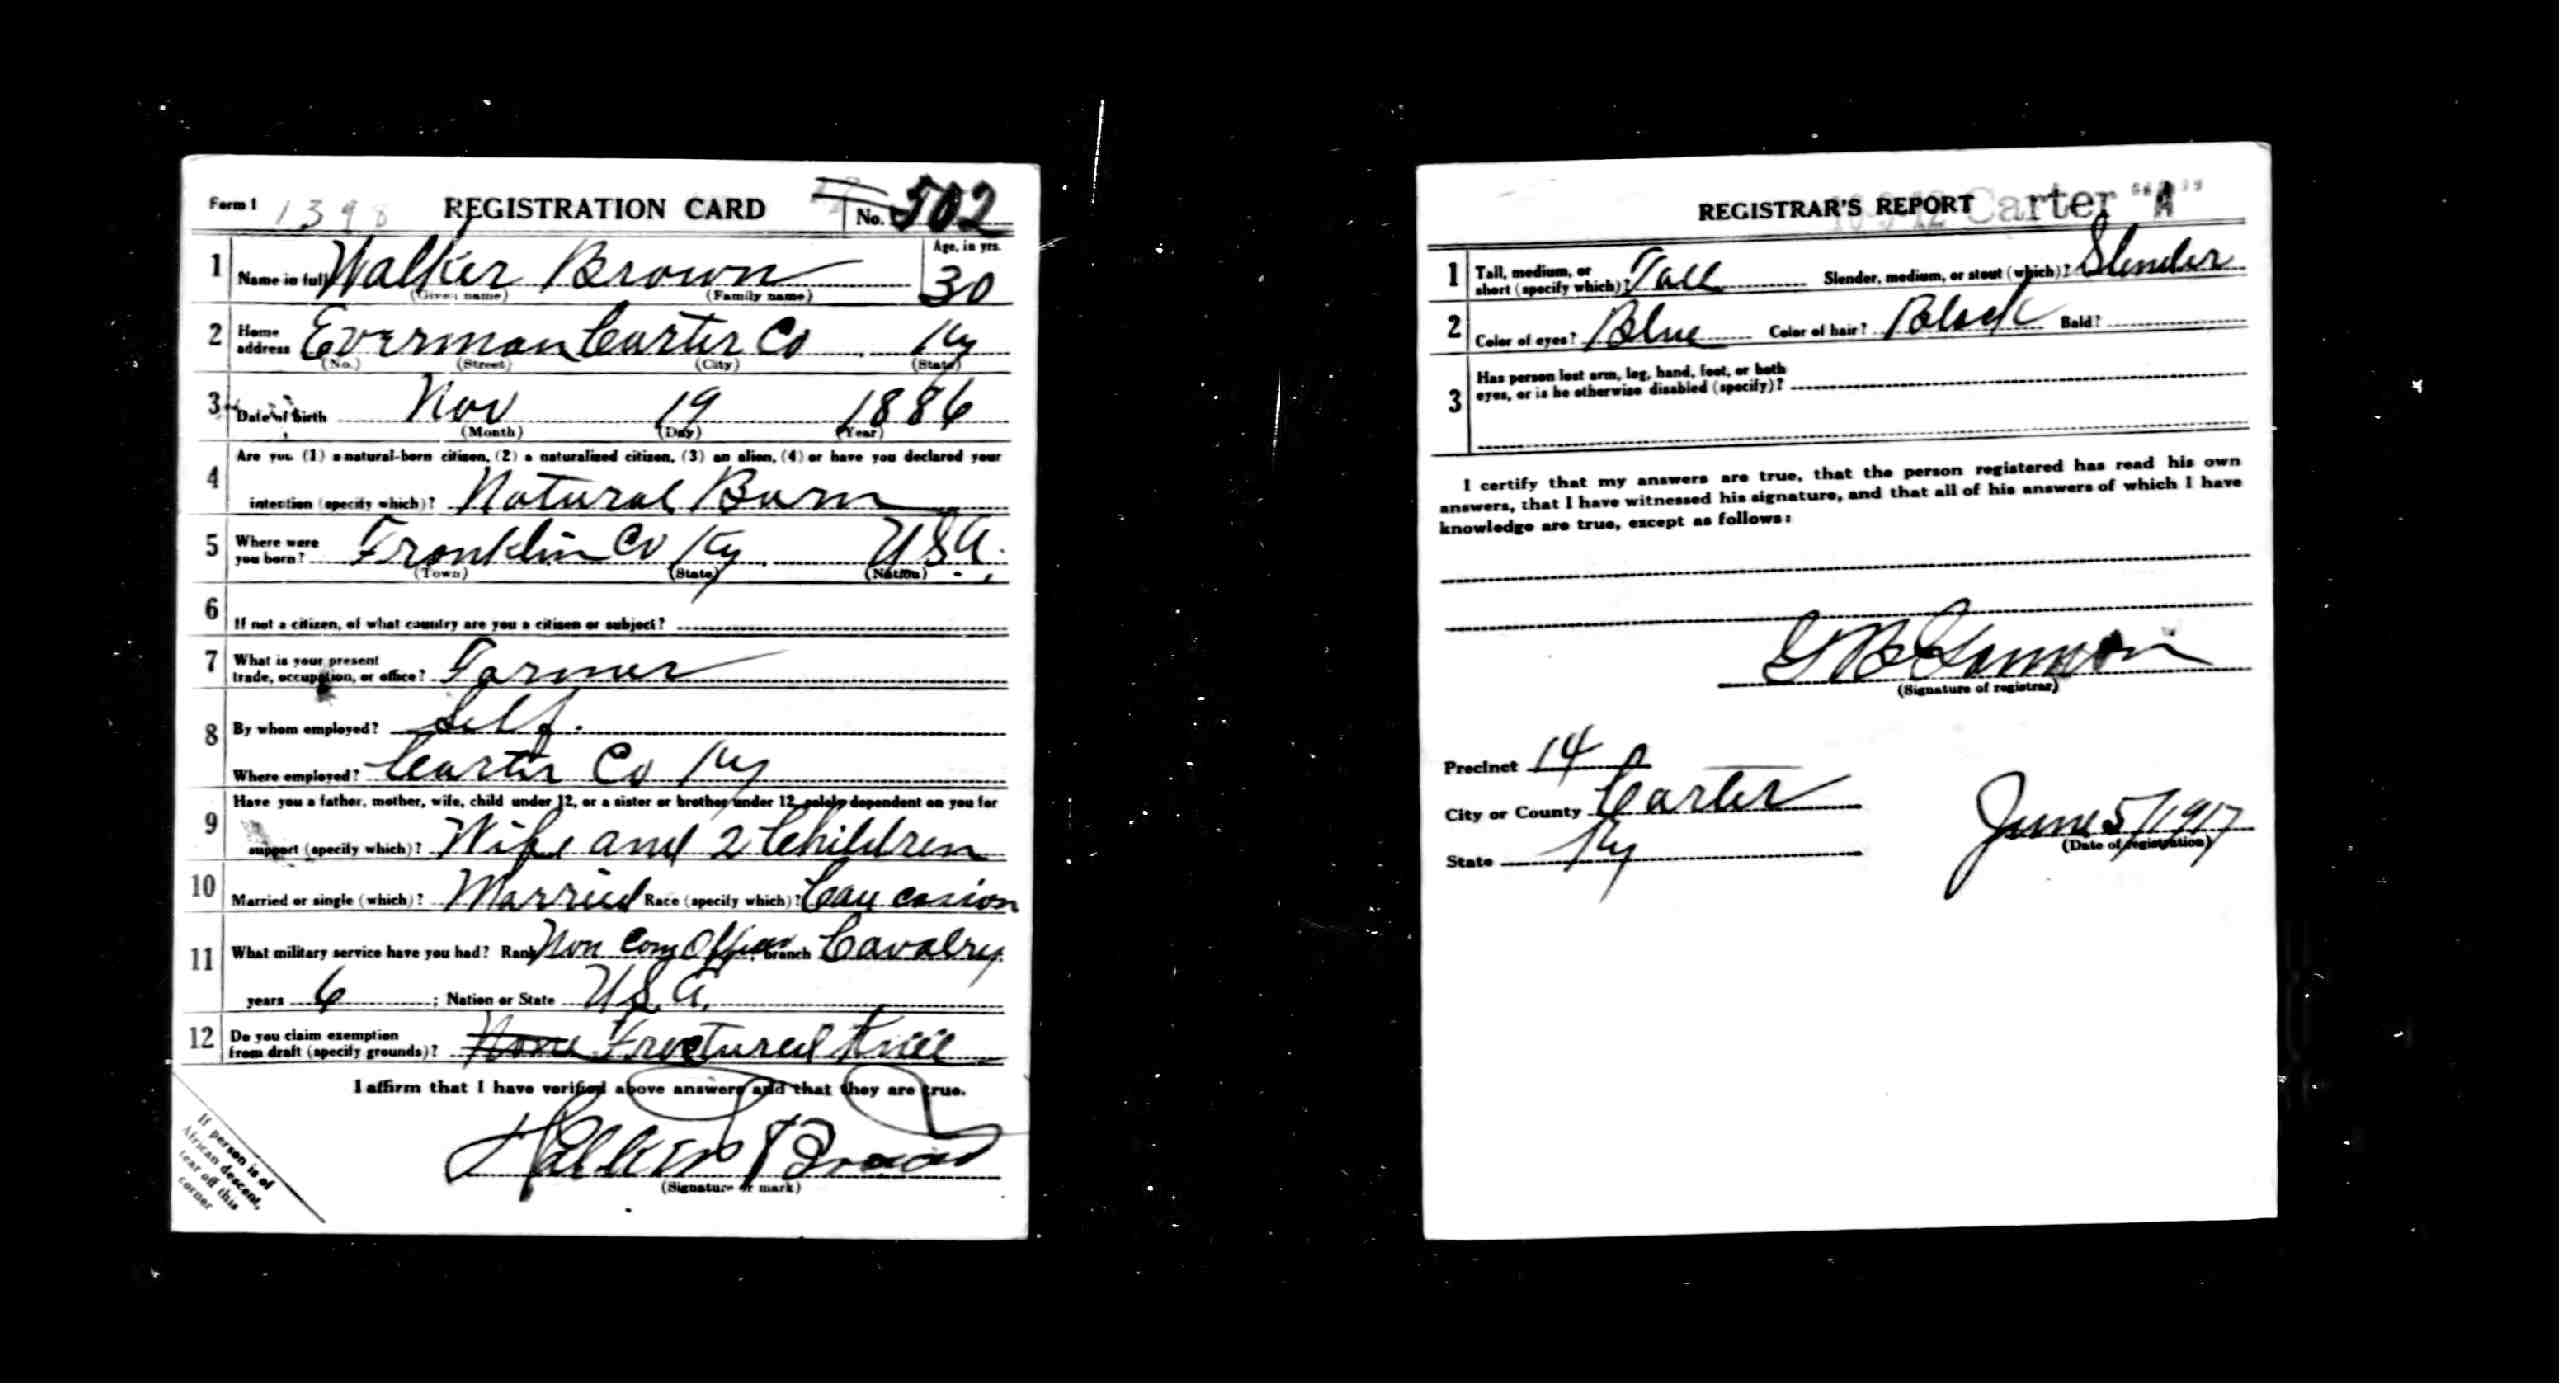 Form 1 1398 REGISTRATION CARD No. 502
1 Name in full Walker Brown Age, in yrs. 30
(Given name) (Family name)
2 Home address Everman Carter Co Ky
(No.) (Street) (City) (State)
3 Date of birth Nov 19 1886
(Month) (Day) (Year)
Are you (1) a natural-born citizen, (2) a naturalized citizen, (3) an alien, (4) or have you declared your
4 intention (specify which)? Natural Born
5 Where were you born? Franklin Co Ky. U.S.A.
(Town) (State) (Nation)
6 If not a citizen, of what country are you a citizen or subject?
7 What is your present trade, occupation, or office? Farmer
8 By whom employed? Self.
Where employed? Carter Co Ky
Have you a father, mother, wife, child under 12, or a sister or brother under 12, solely dependent on you for
9 support (specify which)? Wife and 2 Children
10 Married or single (which)? Married Race (specify which)? Caucasion
11 What military service have you had? Rank Non Com Officer; branch Cavalry
years 6; Nation or State U.S.A.
12 Do you claim exemption from draft (specify grounds)? None Fractured Knee
I affirm that I have verified above answers and that they are true.
Walker Brown
(Signature or mark)
If person is of
African descent,
tear off this
corner
REGISTRAR'S REPORT Carter "A"
1 Tall, medium, or short (specify which)? Tall Slender, medium, or stout (which)? Slender
2 Color of eyes? Blue Color of hair? Black Bald?
3 Has person lost arm, leg, hand, foot, or both
eyes, or is he otherwise disabled (specify)?
I certify that my answers are true, that the person registered has read his own
answers, that I have witnessed his signature, and that all of his answers of which I have
knowledge are true, except as follows:
(Signature of registrar)
Precinct 14
City or County Carter
State Ky
June 5/1917
(Date of registration)